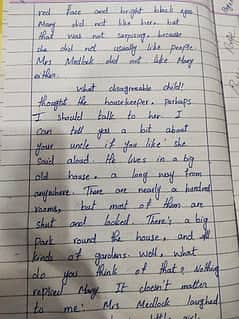 red face and bright black eyes
Mary did not like her, but
that was not surprising, because
she did not usually like people
Mrs Medlock did not like Mary
either.
What disagreeable child!
thought the housekeeper, perhaps
I should talk to her. I
can tell you a bit about
your uncle if you like she
said aloud. He lives in a big
old house, a long way from
anywhere. There are nearly a hundred
rooms, but most of them are
shut and locked. There's a big
park round the house, and all
kinds of gardens. Well, what
do you think of that? Nothing
replied Mary. It doesn't matter
to me. Mrs Medlock laughed
little girl